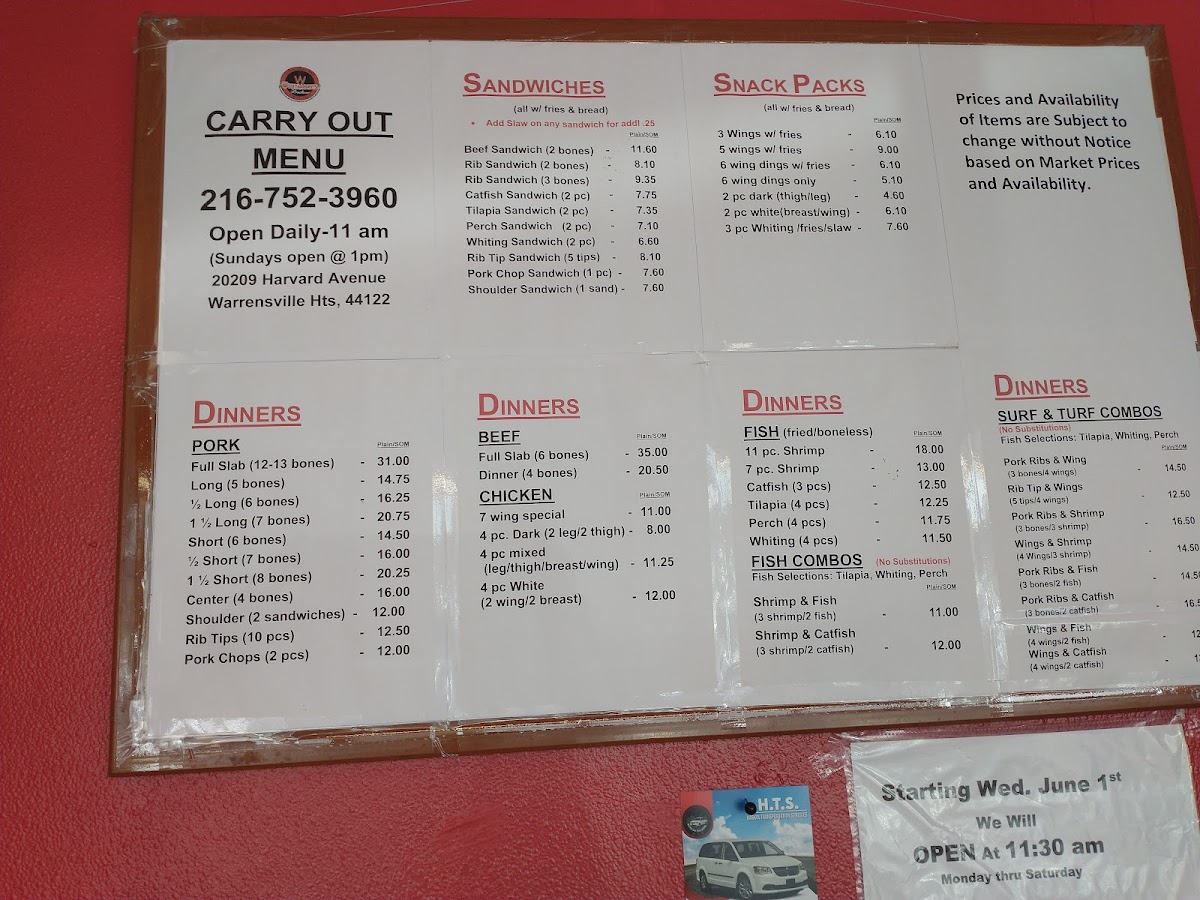 W
CARRY OUT
MENU
216-752-3960
Open Daily-11 am
(Sundays open @ 1pm)
20209 Harvard Avenue
Warrensville Hts, 44122
SANDWICHES
(all w/ fries & bread)
• Add Slaw on any sandwich for addl .25
Plain/SOM
Beef Sandwich (2 bones) - 11.60
Rib Sandwich (2 bones) - 8.10
Rib Sandwich (3 bones) - 9.35
Catfish Sandwich (2 pc) - 7.75
Tilapia Sandwich (2 pc) - 7.35
Perch Sandwich (2 pc) - 7.10
Whiting Sandwich (2 pc) - 6.60
Rib Tip Sandwich (5 tips) - 8.10
Pork Chop Sandwich (1 pc) - 7.60
Shoulder Sandwich (1 sand) - 7.60
SNACK PACKS
(all w/ fries & bread)
Plain/SOM
3 Wings w/ fries - 6.10
5 wings w/ fries - 9.00
6 wing dings w/ fries - 6.10
6 wing dings only - 5.10
2 pc dark (thigh/leg) - 4.60
2 pc white(breast/wing) - 6.10
3 pc Whiting /fries/slaw - 7.60
Prices and Availability
of Items are Subject to
change without Notice
based on Market Prices
and Availability.
DINNERS
PORK Plain/SOM
Full Slab (12-13 bones) - 31.00
Long (5 bones) - 14.75
½ Long (6 bones) - 16.25
1 ½ Long (7 bones) - 20.75
Short (6 bones) - 14.50
½ Short (7 bones) - 16.00
1 ½ Short (8 bones) - 20.25
Center (4 bones) - 16.00
Shoulder (2 sandwiches) - 12.00
Rib Tips (10 pcs) - 12.50
Pork Chops (2 pcs) - 12.00
DINNERS
BEEF Plain/SOM
Full Slab (6 bones) - 35.00
Dinner (4 bones) - 20.50
CHICKEN Plain/SOM
7 wing special - 11.00
4 pc. Dark (2 leg/2 thigh) - 8.00
4 pc mixed
(leg/thigh/breast/wing) - 11.25
4 pc White
(2 wing/2 breast) - 12.00
DINNERS
FISH (fried/boneless) Plain/SOM
11 pc. Shrimp - 18.00
7 pc. Shrimp - 13.00
Catfish (3 pcs) - 12.50
Tilapia (4 pcs) - 12.25
Perch (4 pcs) - 11.75
Whiting (4 pcs) - 11.50
FISH COMBOS (No Substitutions)
Fish Selections: Tilapia, Whiting, Perch
Plain/SOM
Shrimp & Fish
(3 shrimp/2 fish) - 11.00
Shrimp & Catfish
(3 shrimp/2 catfish) - 12.00
DINNERS
SURF & TURF COMBOS
(No Substitutions)
Fish Selections: Tilapia, Whiting, Perch
Plain/SOM
Pork Ribs & Wing
(3 bones/4 wings) - 14.50
Rib Tip & Wings
(5 tips/4 wings) - 12.50
Pork Ribs & Shrimp
(3 bones/3 shrimp) - 16.50
Wings & Shrimp
(4 Wings/3 shrimp) - 14.50
Pork Ribs & Fish
(3 bones/2 fish) - 14.50
Pork Ribs & Catfish
(3 bones/2 catfish) - 16.5
Wings & Fish
(4 wings/2 fish) - 12
Wings & Catfish
(4 wings/2 catfish) -
H.T.S.
Starting Wed. June 1st
We Will
OPEN At 11:30 am
Monday thru Saturday